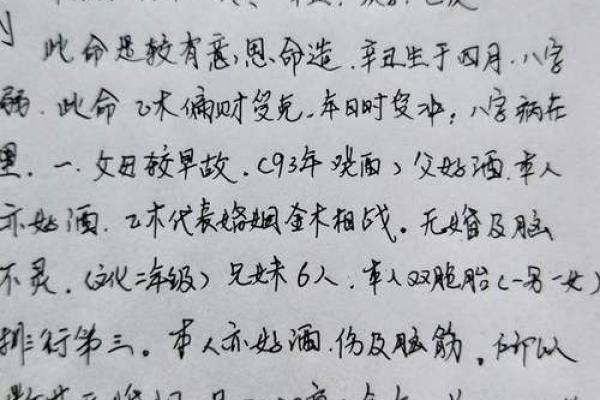 此命是较有意思命造.辛丑生于四月.八字
弱.此命乙木偏财受克.年日时受冲;八字病在
里.一.父母较早故.(93年癸酉)父好酒.本人
亦好酒.乙木代表婚姻金木相战。无婚及脑
不灵.(文化二年级)兄妹6人.本人双胞胎(一男一女)
排行第三。本人亦好酒.伤及脑筋.所以